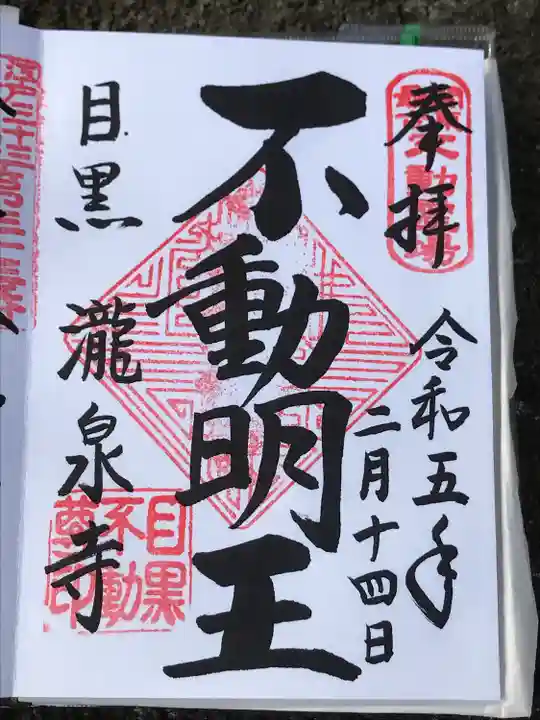 奉拝
令和五年
二月十四日
不動明王
目黒
瀧泉寺
目黒
不動
尊印